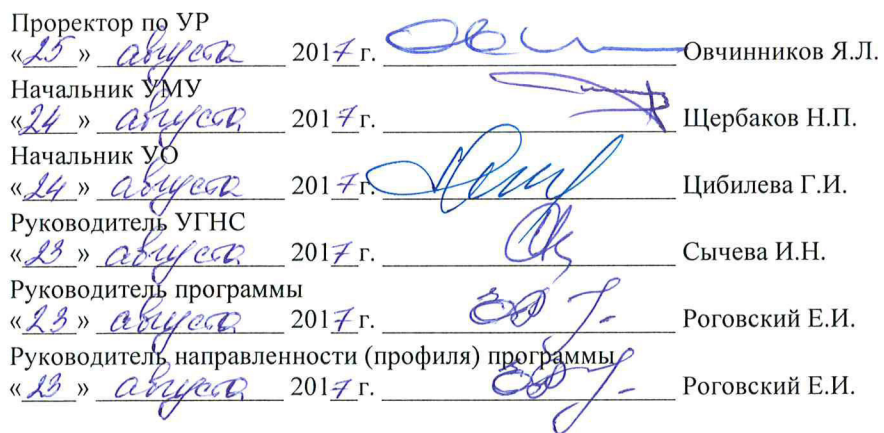 Проректор по УР
«25» августа 2017 г. Овчинников Я.Л.
Начальник УМУ
«24» августа 2017 г. Щербаков Н.П.
Начальник УО
«24» августа 2017 г. Цибилева Г.И.
Руководитель УГНС
«23» августа 2017 г. Сычева И.Н.
Руководитель программы
«23» августа 2017 г. Роговский Е.И.
Руководитель направленности (профиля) программы
«23» августа 2017 г. Роговский Е.И.